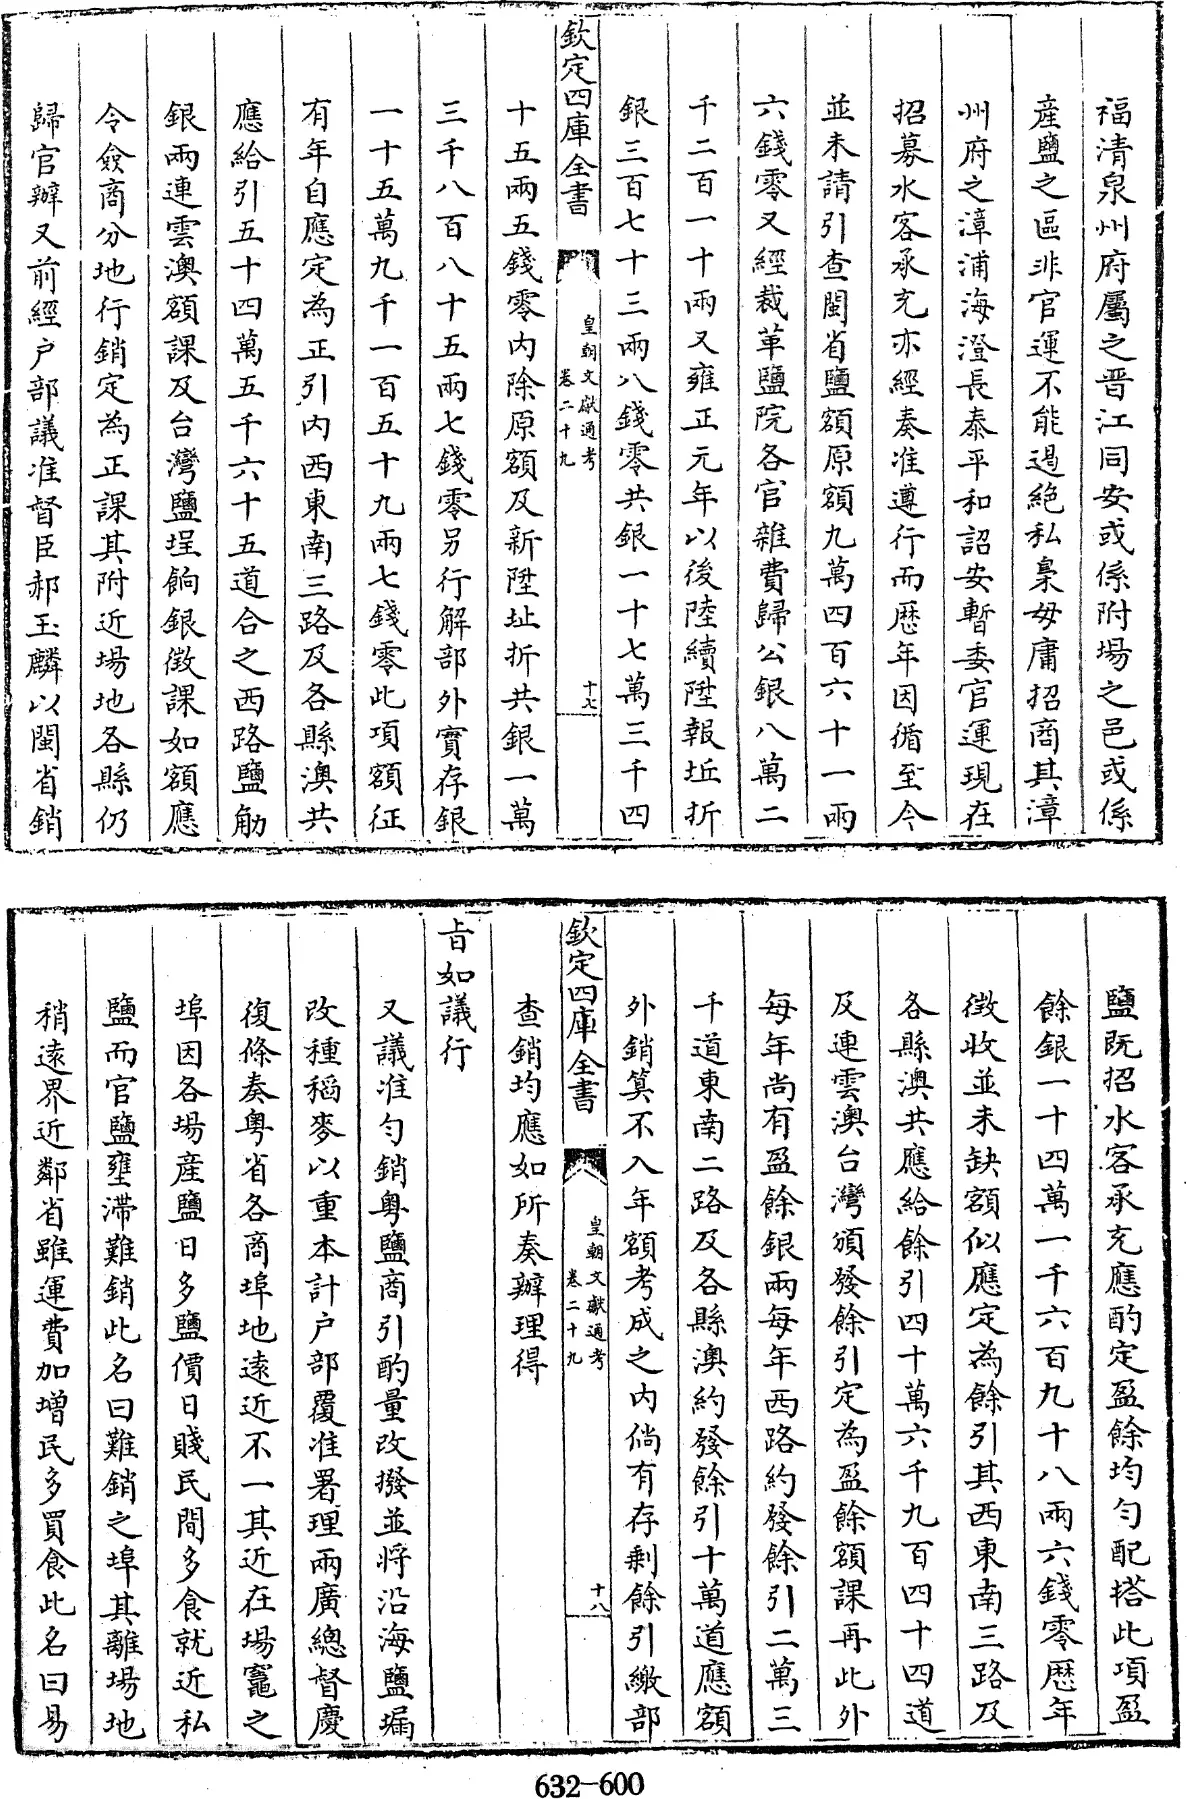 福清泉州府屬之晋江同安或係附場之邑或係
産鹽之區非官運不能遏絶私梟毋庸招商其漳
州府之漳浦海澄長泰平和詔安暫委官運現在
招募水客承充亦經奏准遵行而歴年因循至今
並未請引查閩省鹽額原額九萬四百六十一兩
六錢零又經裁革鹽院各官雜費歸公銀八萬二
千二百一十兩又雍正元年以後陸續陞報坵折
銀三百七十三兩八錢零共銀一十七萬三千四
欽定四庫全書
皇朝文獻通考
卷二十九
十七
十五兩五錢零内除原額及新陞坵折共銀一萬
三千八百八十五兩七錢零另行解部外實存銀
一十五萬九千一百五十九兩七錢零此項額征
有年自應定為正引内西東南三路及各縣澳共
應給引五十四萬五千六十五道合之西路鹽觔
銀兩連雲澳額課及台灣鹽埕餉銀徴課如額應
令僉商分地行銷定為正課其附近場地各縣仍
歸官辦又前經户部議准督臣郝玉麟以閩省銷
鹽既招水客承充應酌定盈餘均勻配搭此項盈
餘銀一十四萬一千六百九十八兩六錢零歴年
徴收並未缺額似應定為餘引其西東南三路及
各縣澳共應給餘引四十萬六千九百四十四道
及連雲澳台灣頒發餘引定為盈餘額課再此外
每年尚有盈餘銀兩每年西路約發餘引二萬三
千道東南二路及各縣澳約發餘引十萬道應額
外銷算不入年額考成之内倘有存剩餘引繳部
欽定四庫全書
皇朝文獻通考
卷二十九
十八
查銷均應如所奏辦理得
旨如議行
又議准勻銷粤鹽商引酌量改撥並將沿海鹽塌
改種稻麥以重本計户部覆准署理兩廣總督慶
復條奏粤省各商埠地遠近不一其近在場竈之
埠因各場産鹽日多鹽價日賤民間多食就近私
鹽而官鹽壅滯難銷此名曰難銷之埠其離場地
稍遠界近鄰省雖運費加増民多買食此名曰易
632-600